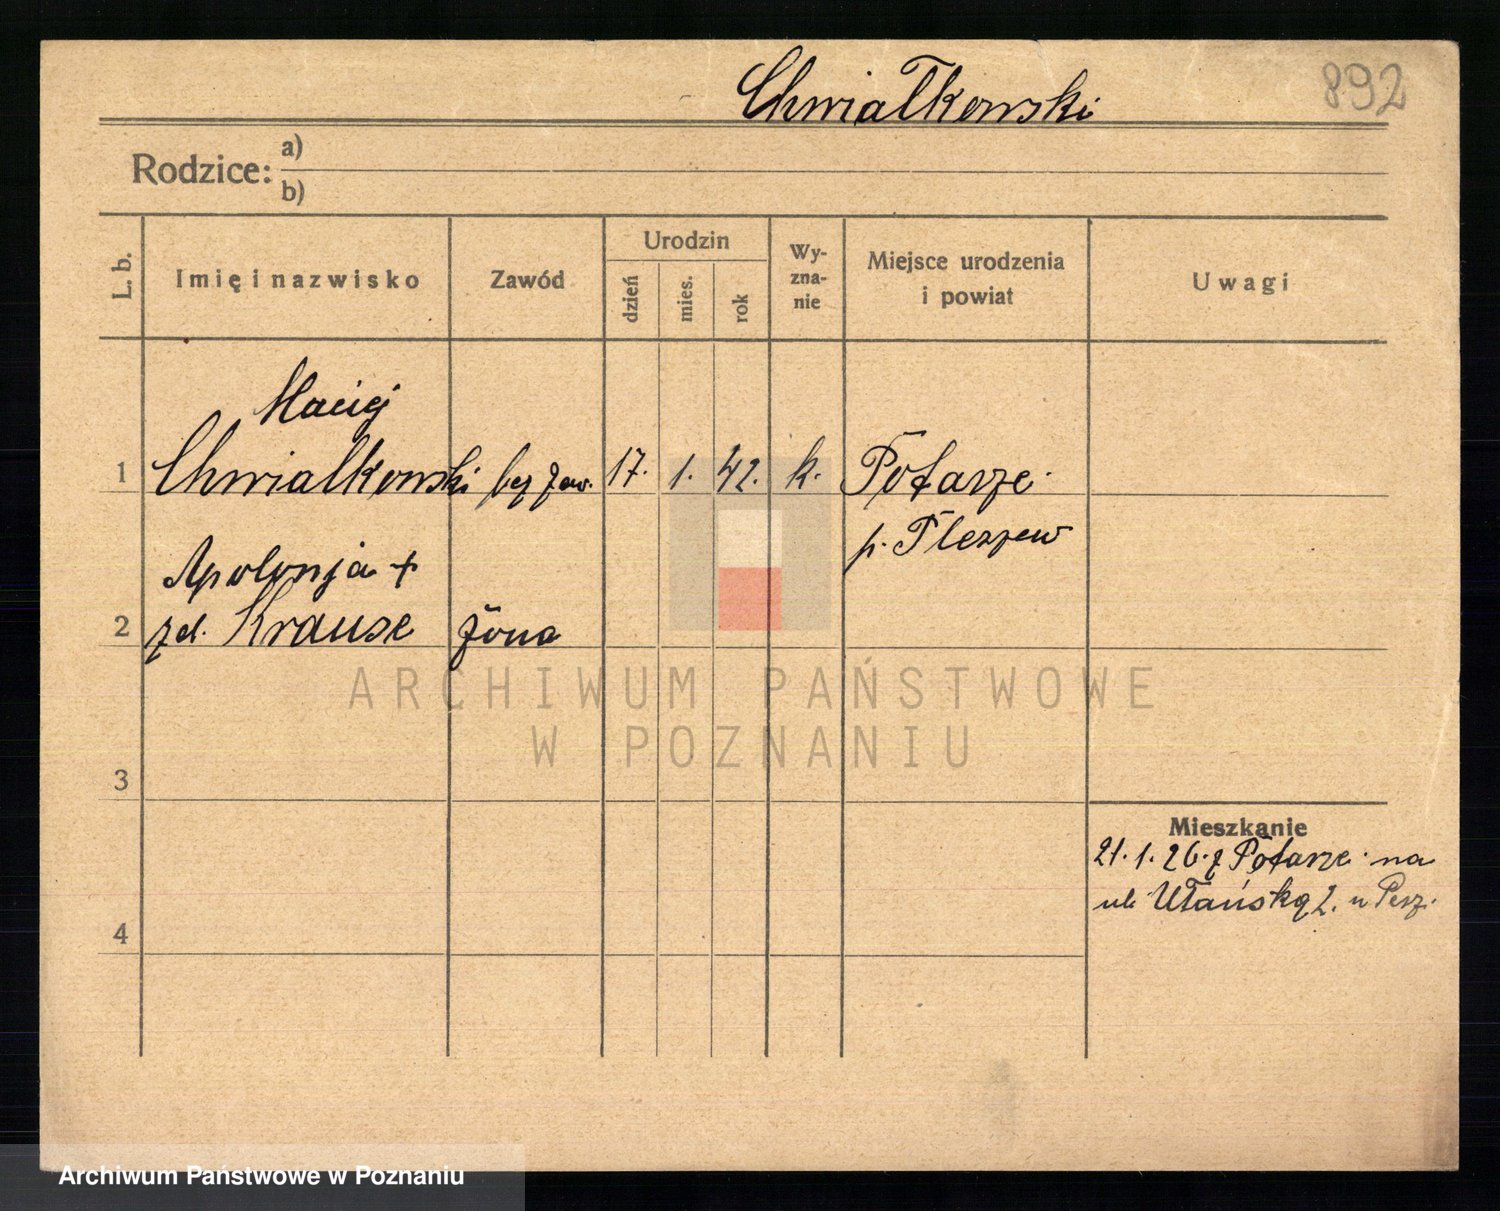 Chwiałkowski
892
Rodzice: a)
b)
L. b.
Imię i nazwisko
Zawód
Urodzin
dzień
mies.
rok
Wy-
zna-
nie
Miejsce urodzenia
i powiat
Uwagi
Maciej
1 Chwialkowski bez zaw. 17. 1. 42. k. Potarze
p. Pleszew
Apolonja +
2 zd. Krause żona
ARCHIWUM PAŃSTWOWE
W POZNANIU
3
Mieszkanie
21.1.26. z Potarze na
ul. Ułańską 2.
4
Archiwum Państwowe w Poznaniu